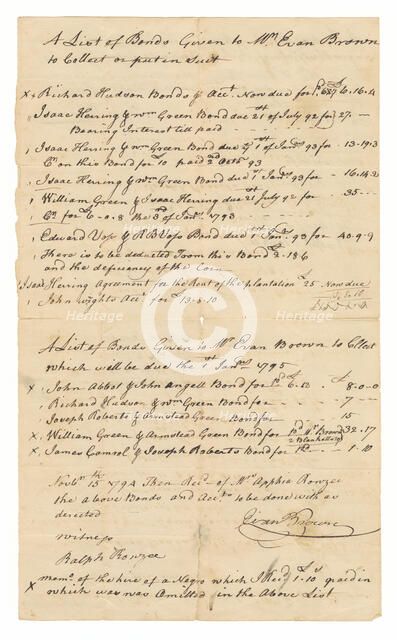 A List of Bonds Given to Mr. Evan Brown
to Collect or put in Suit
x Richard Hudson Bonds & Acct. Now due for
Isaac Herring & Wm Green Bond due 21st of July 92 for 27 -
Bearing Interest till paid
Isaac Herring & Wm Green Bond due ye 1st of Janry 93 for - 13.19.3
Cr. on this Bond for paid 2nd 93
Isaac Herring & Wm Green Bond due 1st Janry 93 for - 16.14.
William Green & Isaac Herring due 21st July 92 for - 35
Cr. for 6.0.8 the 3d of Janry 1793
Edward Voss & R B Voss Bond due 1st Janr. 93 for 40.9.9
There is to be deducted from this Bond 2.18.6
and the deficiency of the Corn
Isaac Herring Agreement for the Rent of the plantation £25 Now due
John Wights Acct. for £13.3.10
A List of Bonds Given to Mr Evan Brown to Collect
which will be due the 1st Janry 1795
x John Abbot & John Angell Bond for 8-0-0
Richard Hudson & Wm Green Bond for 7 - -
Joseph Roberts & Armstead Green Bond for 15
x William Green & Armstead Green Bond for 32.17
x James Gamrol & Joseph Roberts Bond for 1-10
Novbr 15th 1794 Then Recd. of Mrs Apphia Rowzee
the above Bonds and Acct. to be done with as
derected
Evan Brown
witness
Ralph Rowzee
x memo. of the hire of a Negro which I Recd 1-10 paid in
which was was Omitted in the Above List
Heritage
Heritage
Heritage
Heritage
Heritage
Heritage